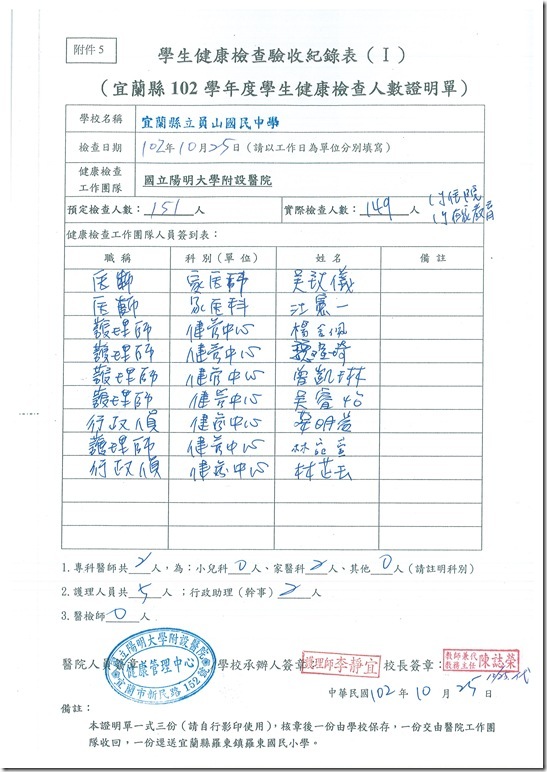 附件 5
學生健康檢查驗收紀錄表（Ⅰ）
（宜蘭縣 102 學年度學生健康檢查人數證明單）
學校名稱 宜蘭縣立員山國民中學
檢查日期 102年10月25日（請以工作日為單位分別填寫）
健康檢查工作團隊 國立陽明大學附設醫院
預定檢查人數：151人 實際檢查人數：149人 1位住院
1位在家教育
健康檢查工作團隊人員簽到表：
職稱 科別（單位） 姓名 備註
医師 家医科
医師 家医科 一
護理師 健管中心 楊
護理師 健管中心
護理師 健管中心 曾凱琳
護理師 健管中心 吳
行政員 健管中心 蔡明
護理師 健管中心 林
行政員 健管中心 林芷玉
1.專科醫師共2人，為：小兒科0人、家醫科2人、其他0人（請註明科別）
2.護理人員共5人；行政助理（幹事）2人
3.醫檢師0人
國立陽明大學附設醫院
健康管理中心
宜蘭市新民路152號
醫院人員簽章 學校承辦人簽章 護理師李靜宜 校長簽章： 教師兼代教務主任陳誌榮
中華民國102年10月25日
備註：
本證明單一式三份（請自行影印使用），核章後一份由學校保存，一份交由醫院工作團
隊收回，一份逕送宜蘭縣羅東鎮羅東國民小學。